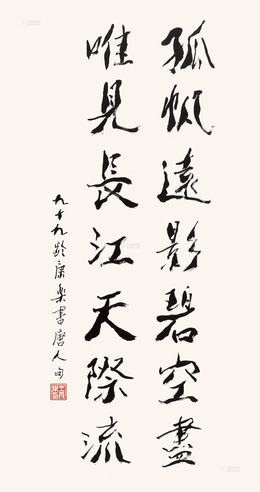 孤帆遠影碧空盡
唯見長江天際流
九十九齡康樂書唐人句